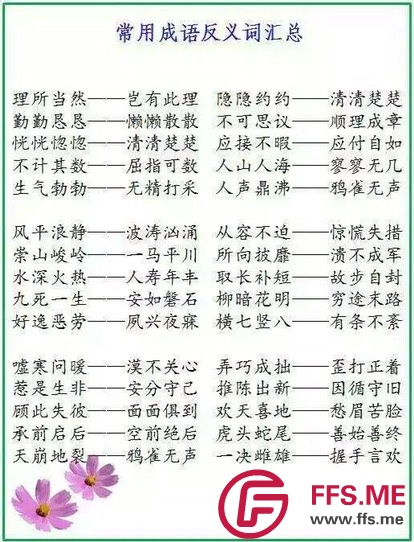 常用成语反义词汇总
理所当然——岂有此理 隐隐约约——清清楚楚
勤勤恳恳——懒懒散散 不可思议——顺理成章
恍恍惚惚——清清楚楚 应接不暇——应付自如
不计其数——屈指可数 人山人海——寥寥无几
生气勃勃——无精打采 人声鼎沸——鸦雀无声
风平浪静——波涛汹涌 从容不迫——惊慌失措
崇山峻岭——一马平川 所向披靡——溃不成军
水深火热——人寿年丰 取长补短——故步自封
九死一生——安如磐石 柳暗花明——穷途末路
好逸恶劳——夙兴夜寐 横七竖八——有条不紊
嘘寒问暖——漠不关心 弄巧成拙——歪打正着
惹是生非——安分守己 推陈出新——因循守旧
顾此失彼——面面俱到 欢天喜地——愁眉苦脸
承前启后——空前绝后 虎头蛇尾——善始善终
天崩地裂——鸦雀无声 一决雌雄——握手言欢
FFS.ME
www.ffs.me